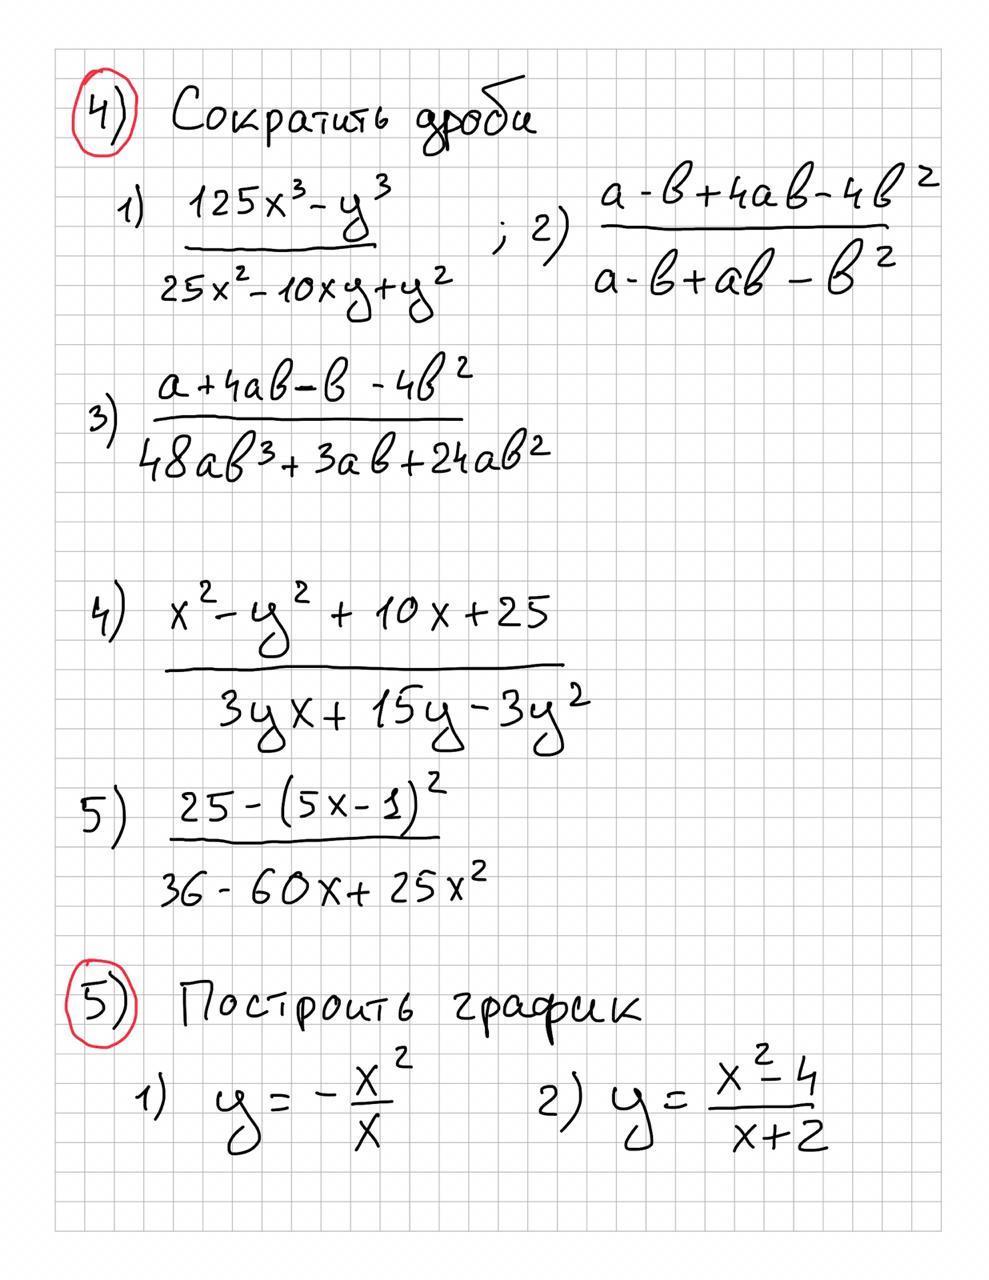 4) Сократить дроби
1) (125x³ - y³) / (25x² - 10xy + y²) ; 2) (a - b + 4ab - 4b²) / (a - b + ab - b²)
3) (a + 4ab - b - 4b²) / (48ab³ + 3ab + 24ab²)
4) (x² - y² + 10x + 25) / (3yx + 15y - 3y²)
5) (25 - (5x - 1)²) / (36 - 60x + 25x²)
5) Построить график
1) y = - x²/x 2) y = (x² - 4) / (x + 2)